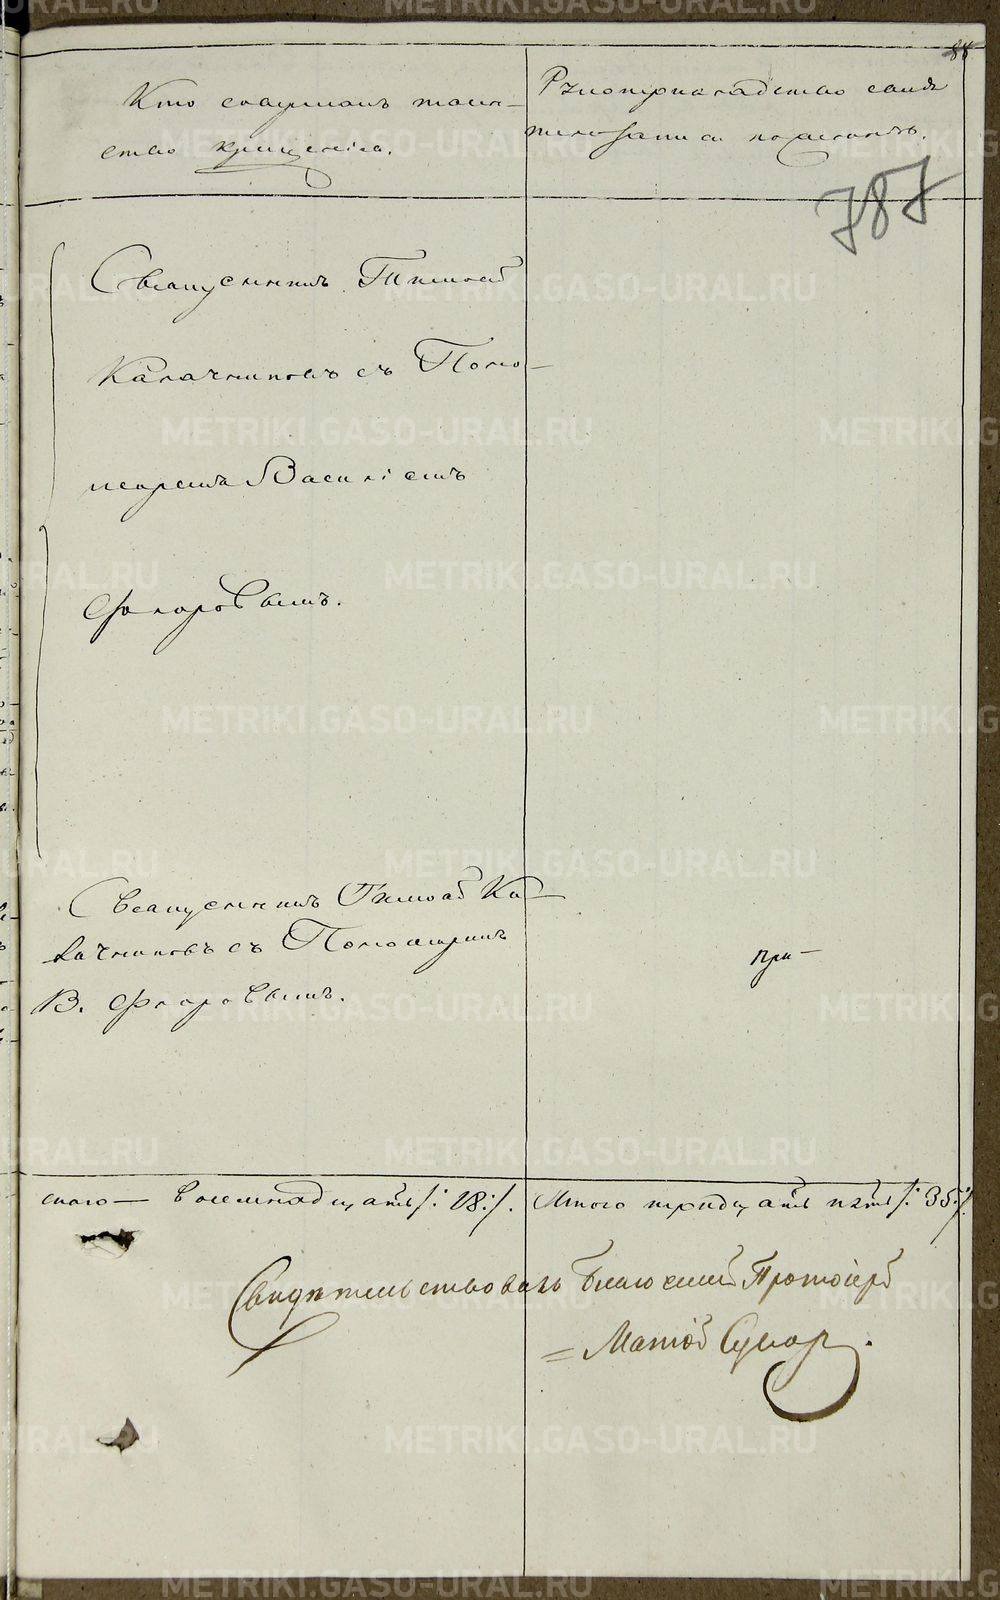 88
Кто совершалъ таин-
ство крещенія.
Рукоприкладство свидѣ
телей записи по желанію.
787
Священникъ Тимоѳей
Калачниковъ съ Поно-
маремъ Василіемъ
Флоровымъ.
Священникъ Тимоѳей Ка-
лачниковъ съ Пономаремъ
В. Флоровымъ.
при-
ского — восемнадцать /: 18 :/.
Итого тридцать пять /: 35 :/.
Свидѣтельствовалъ Благочинный Протоіерей
= Матѳей
METRIKI.GASO-URAL.RU